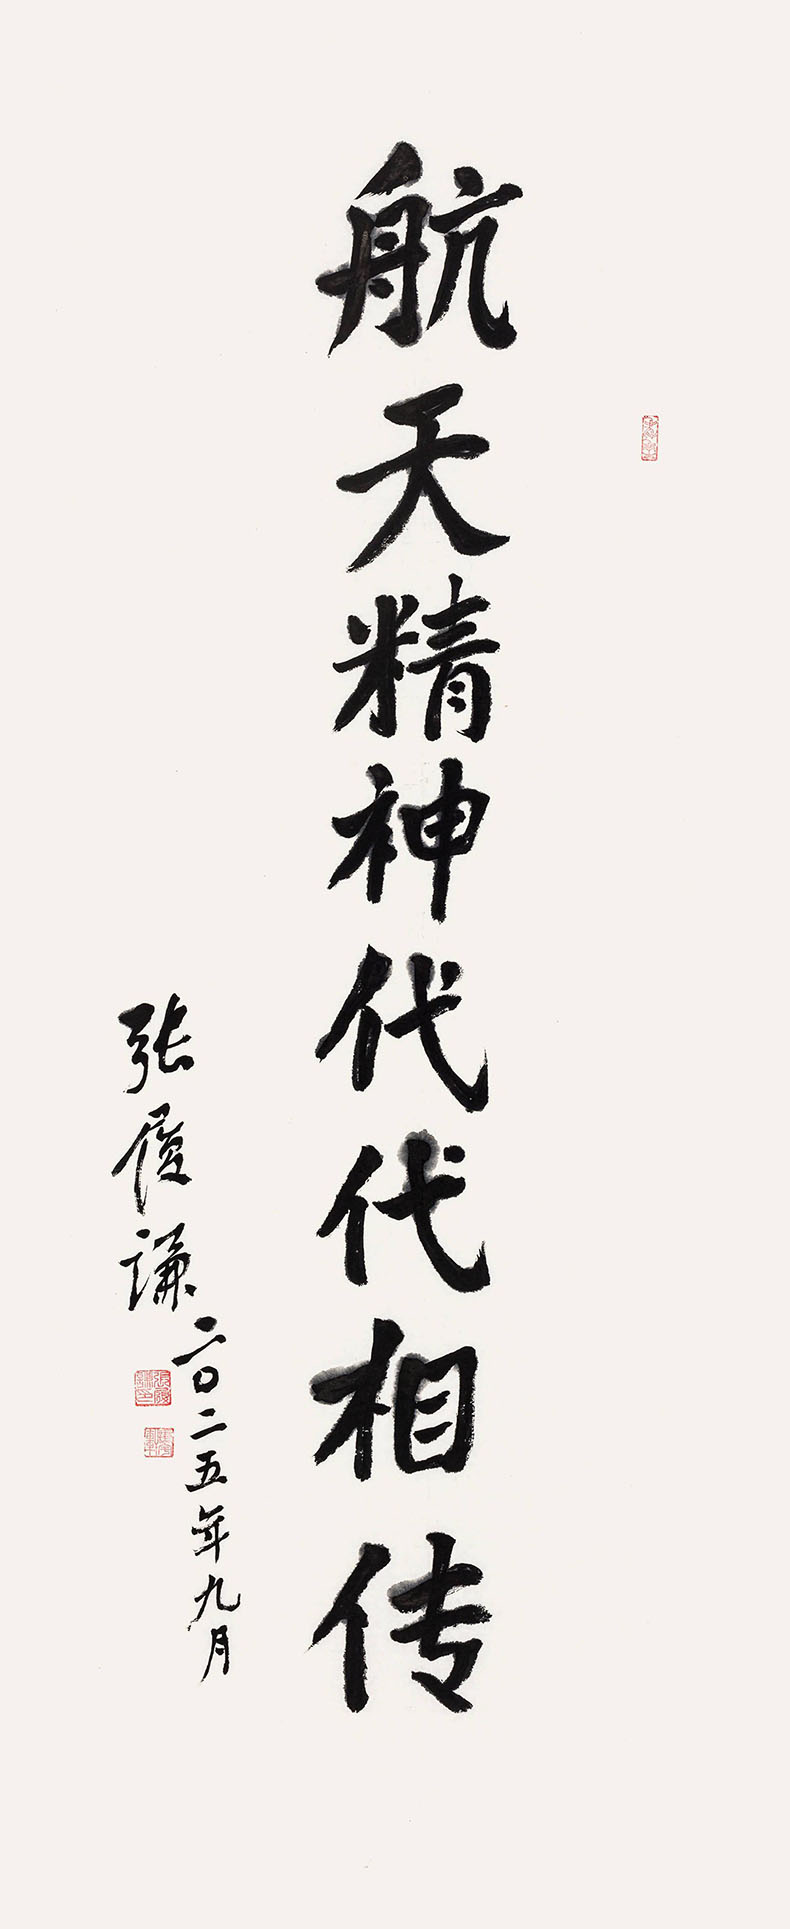 航天精神代代相传
张履谦
二〇二五年九月